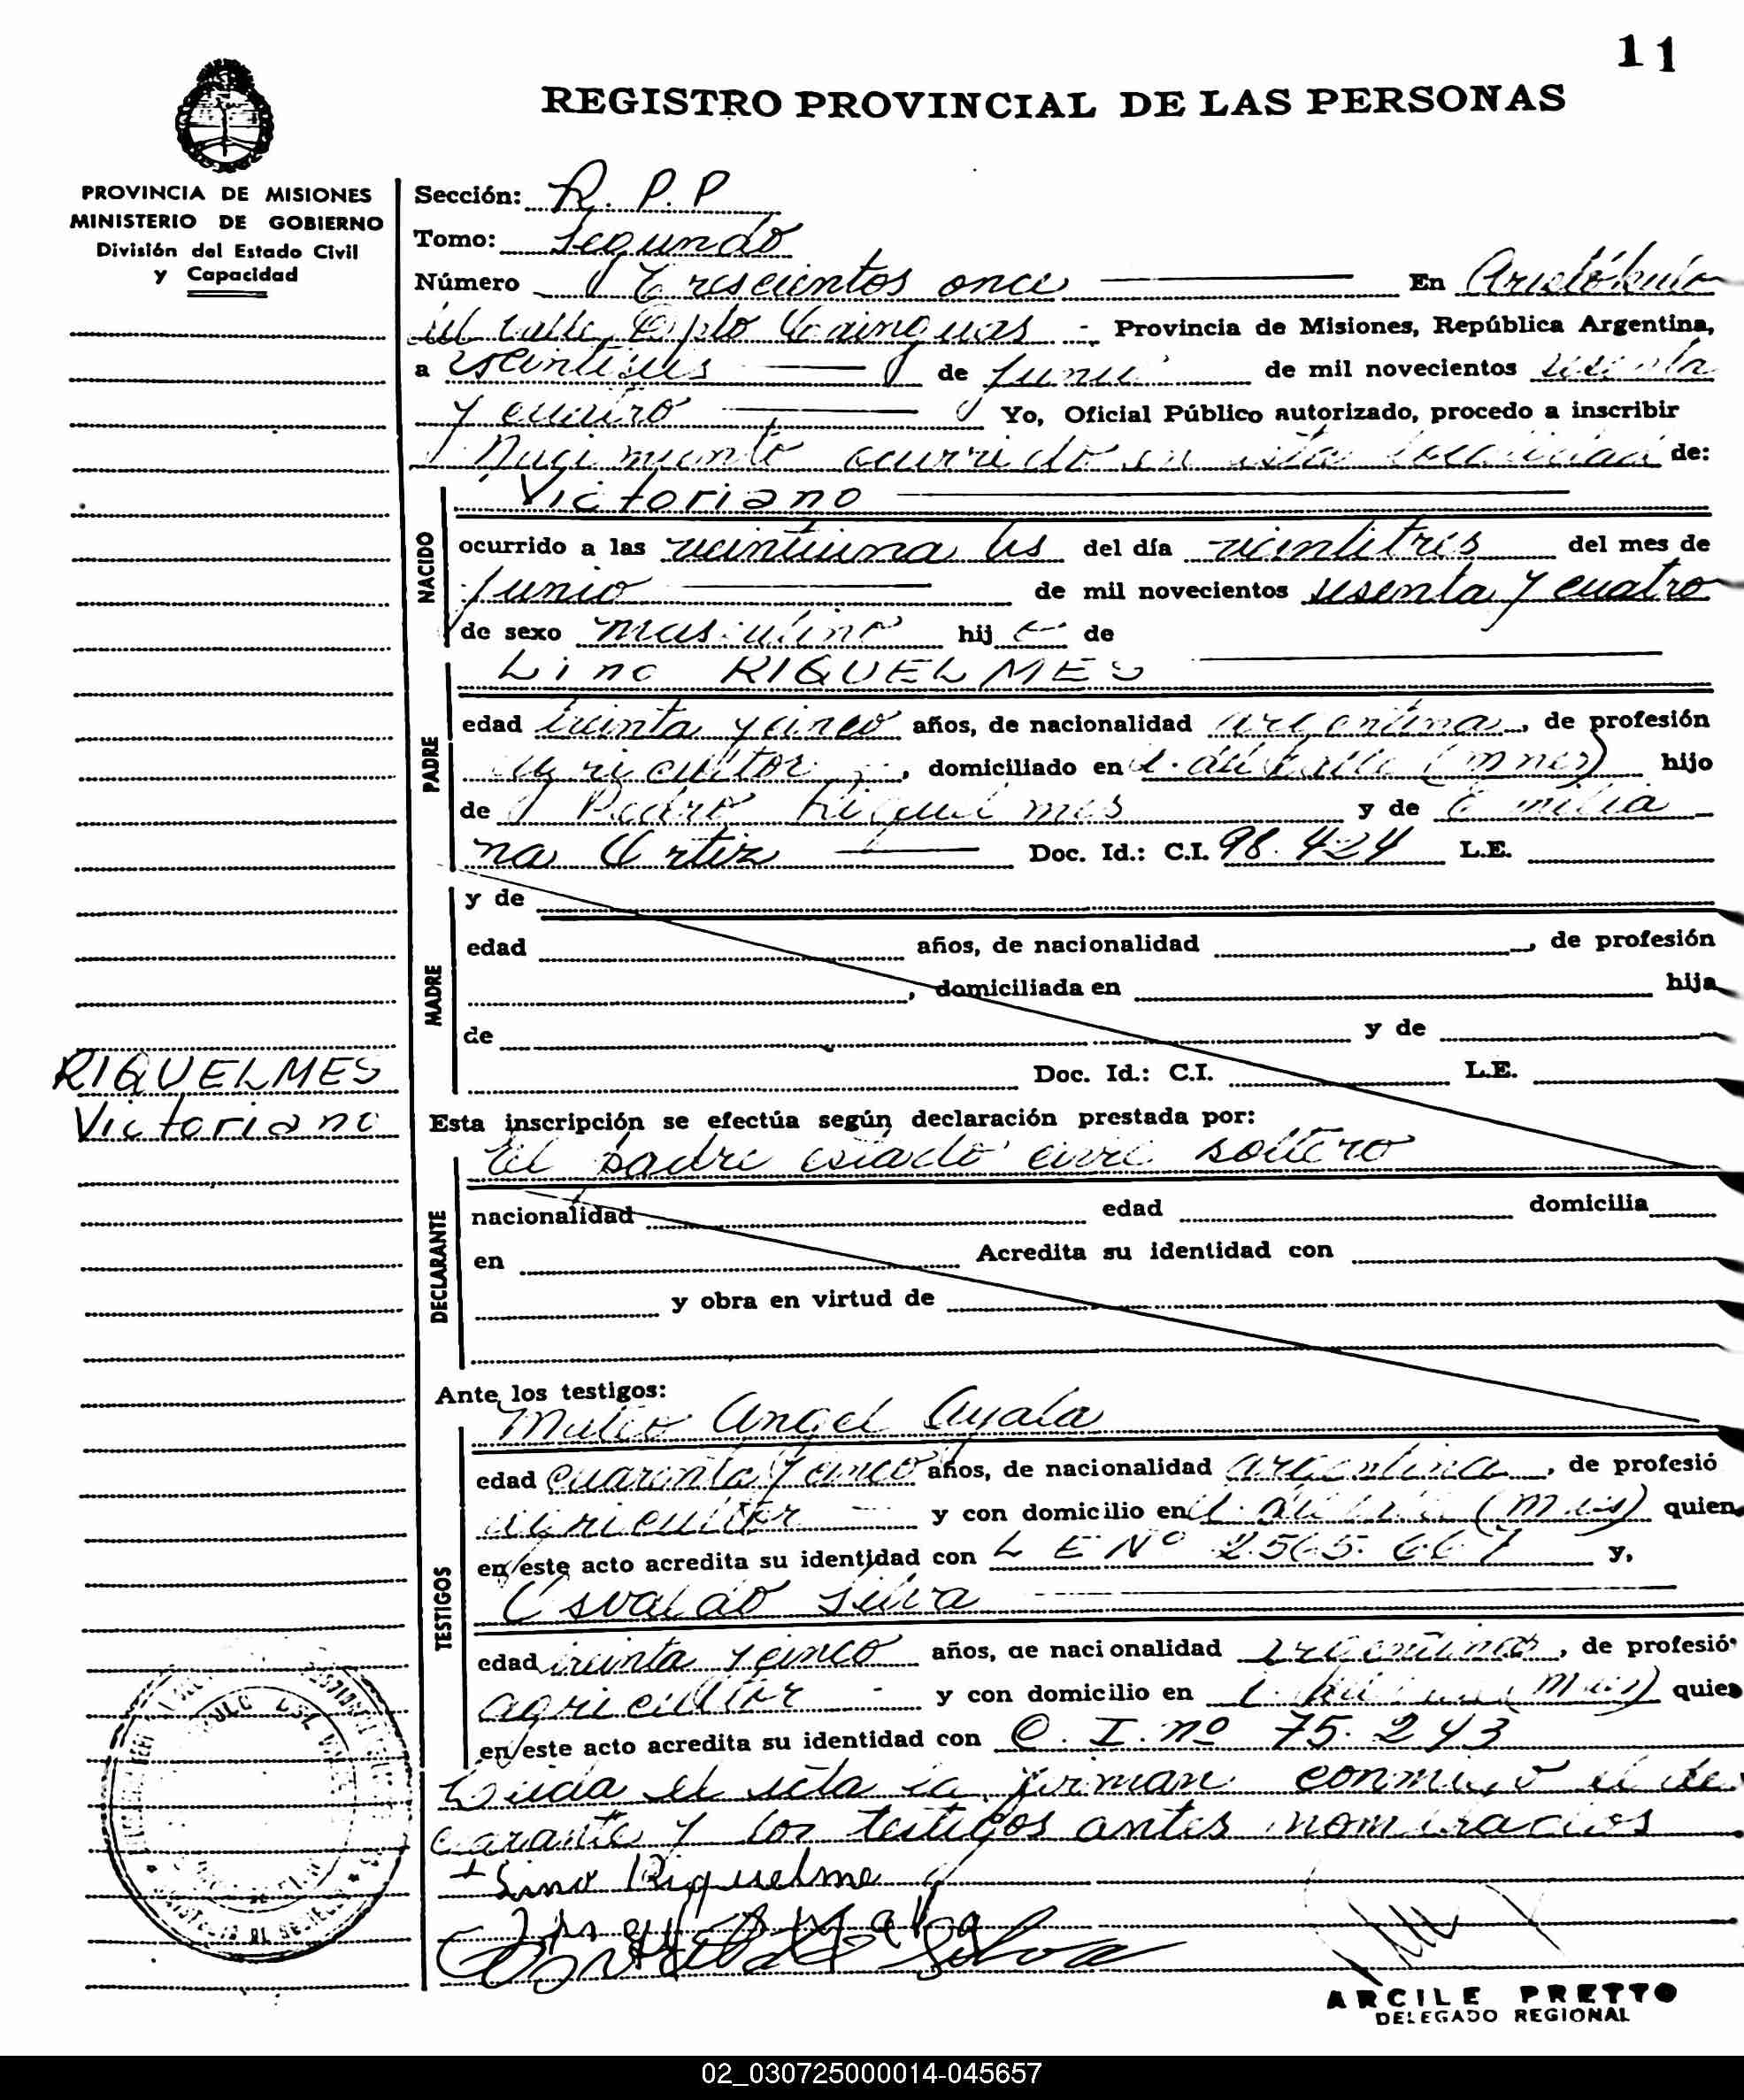 11
REGISTRO PROVINCIAL DE LAS PERSONAS
PROVINCIA DE MISIONES
MINISTERIO DE GOBIERNO
División del Estado Civil
y Capacidad
Sección: R. P. P
Tomo: Segundo
Número Trescientos once En Aristóbulo
del Valle, Dpto Cainguas -, Provincia de Misiones, República Argentina,
a veintiseis de Junio de mil novecientos sesenta
y cuatro Yo, Oficial Público autorizado, procedo a inscribir
Nacimiento ocurrido en esta localidad de:
NACIDO
Victoriano
ocurrido a las veintiuna hs del día veintitres del mes de
Junio de mil novecientos sesenta y cuatro
de sexo masculino hijo de
PADRE
Lino RIQUELMES
edad treinta y cinco años, de nacionalidad argentina, de profesión
agricultor -, domiciliado en A. del Valle (Mnes) hijo
de Pedro Riquelmes y de Emilia
na Ortiz Doc. Id.: C.I. 98.424 L.E.
MADRE
y de
edad años, de nacionalidad , de profesión
, domiciliada en hija
de y de
Doc. Id.: C.I. L.E.
RIQUELMES
Victoriano
Esta inscripción se efectúa según declaración prestada por:
El padre estado civil soltero
DECLARANTE
nacionalidad edad domicilia
en Acredita su identidad con
y obra en virtud de
Ante los testigos:
TESTIGOS
Mateo Angel Ayala
edad cuarenta y cinco años, de nacionalidad argentina, de profesió
agricultor - y con domicilio en A. del Valle (Mnes) quien
en este acto acredita su identidad con L E Nº 2565.667 y,
Osvaldo Silva
edad treinta y cinco años, de nacionalidad argentina, de profesió
agricultor - y con domicilio en A. del (Mnes) quie
en este acto acredita su identidad con C. I. nº 75.243
Leida el acta la firman conmigo el de
clarante y los testigos antes nombrados
Lino Riquelme
Angel Ayala
Osvaldo Silva
ARCILE PRETTO
DELEGADO REGIONAL
02_030725000014-045657